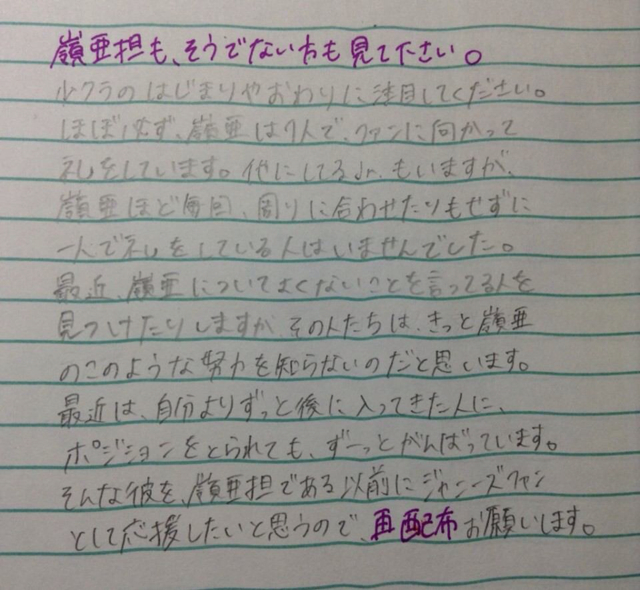 嶺亜担も、そうでない方も見て下さい。
少クラのはじまりやおわりに注目してください。
ほぼ必ず、嶺亜は1人で、ファンに向かって
礼をしています。他にしてるJr.もいますが、
嶺亜ほど毎回、周りに合わせたりもせずに
一人で礼をしている人はいませんでした。
最近、嶺亜についてよくないことを言ってる人を
見つけたりしますが、その人たちは、きっと嶺亜
のこのような努力を知らないのだと思います。
最近は、自分よりずっと後に入ってきた人に、
ポジションをとられても、ずーっとがんばっています。
そんな彼を、嶺亜担である以前にジャニーズファン
として応援したいと思うので、再配布お願いします。